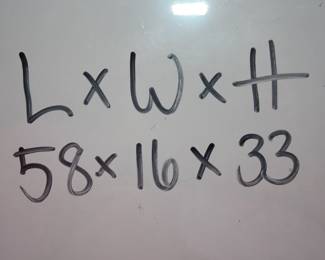 L x W x H
58 x 16 x 33